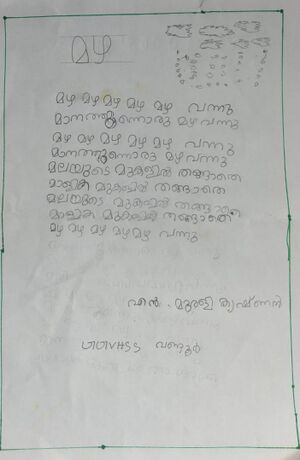 മഴ
മഴ മഴ മഴ മഴ മഴ വന്നു
മാനത്തുന്നൊരു മഴ വന്നു
മഴ മഴ മഴ മഴ മഴ വന്നു
മാനത്തുന്നൊരു മഴ വന്നു
മലയുടെ മുകളിൽ തങ്ങാതെ
മാളിക മുകളിൽ തങ്ങാതെ
മലയുടെ മുകളിൽ തങ്ങാതെ
മാളിക മുകളിൽ തങ്ങാതെ
മഴ മഴ മഴ മഴ മഴ വന്നു
എൻ . മുരളി കൃഷ്ണൻ
ജിജിവിഎച്ച്എസ്എസ് വണ്ടൂർ